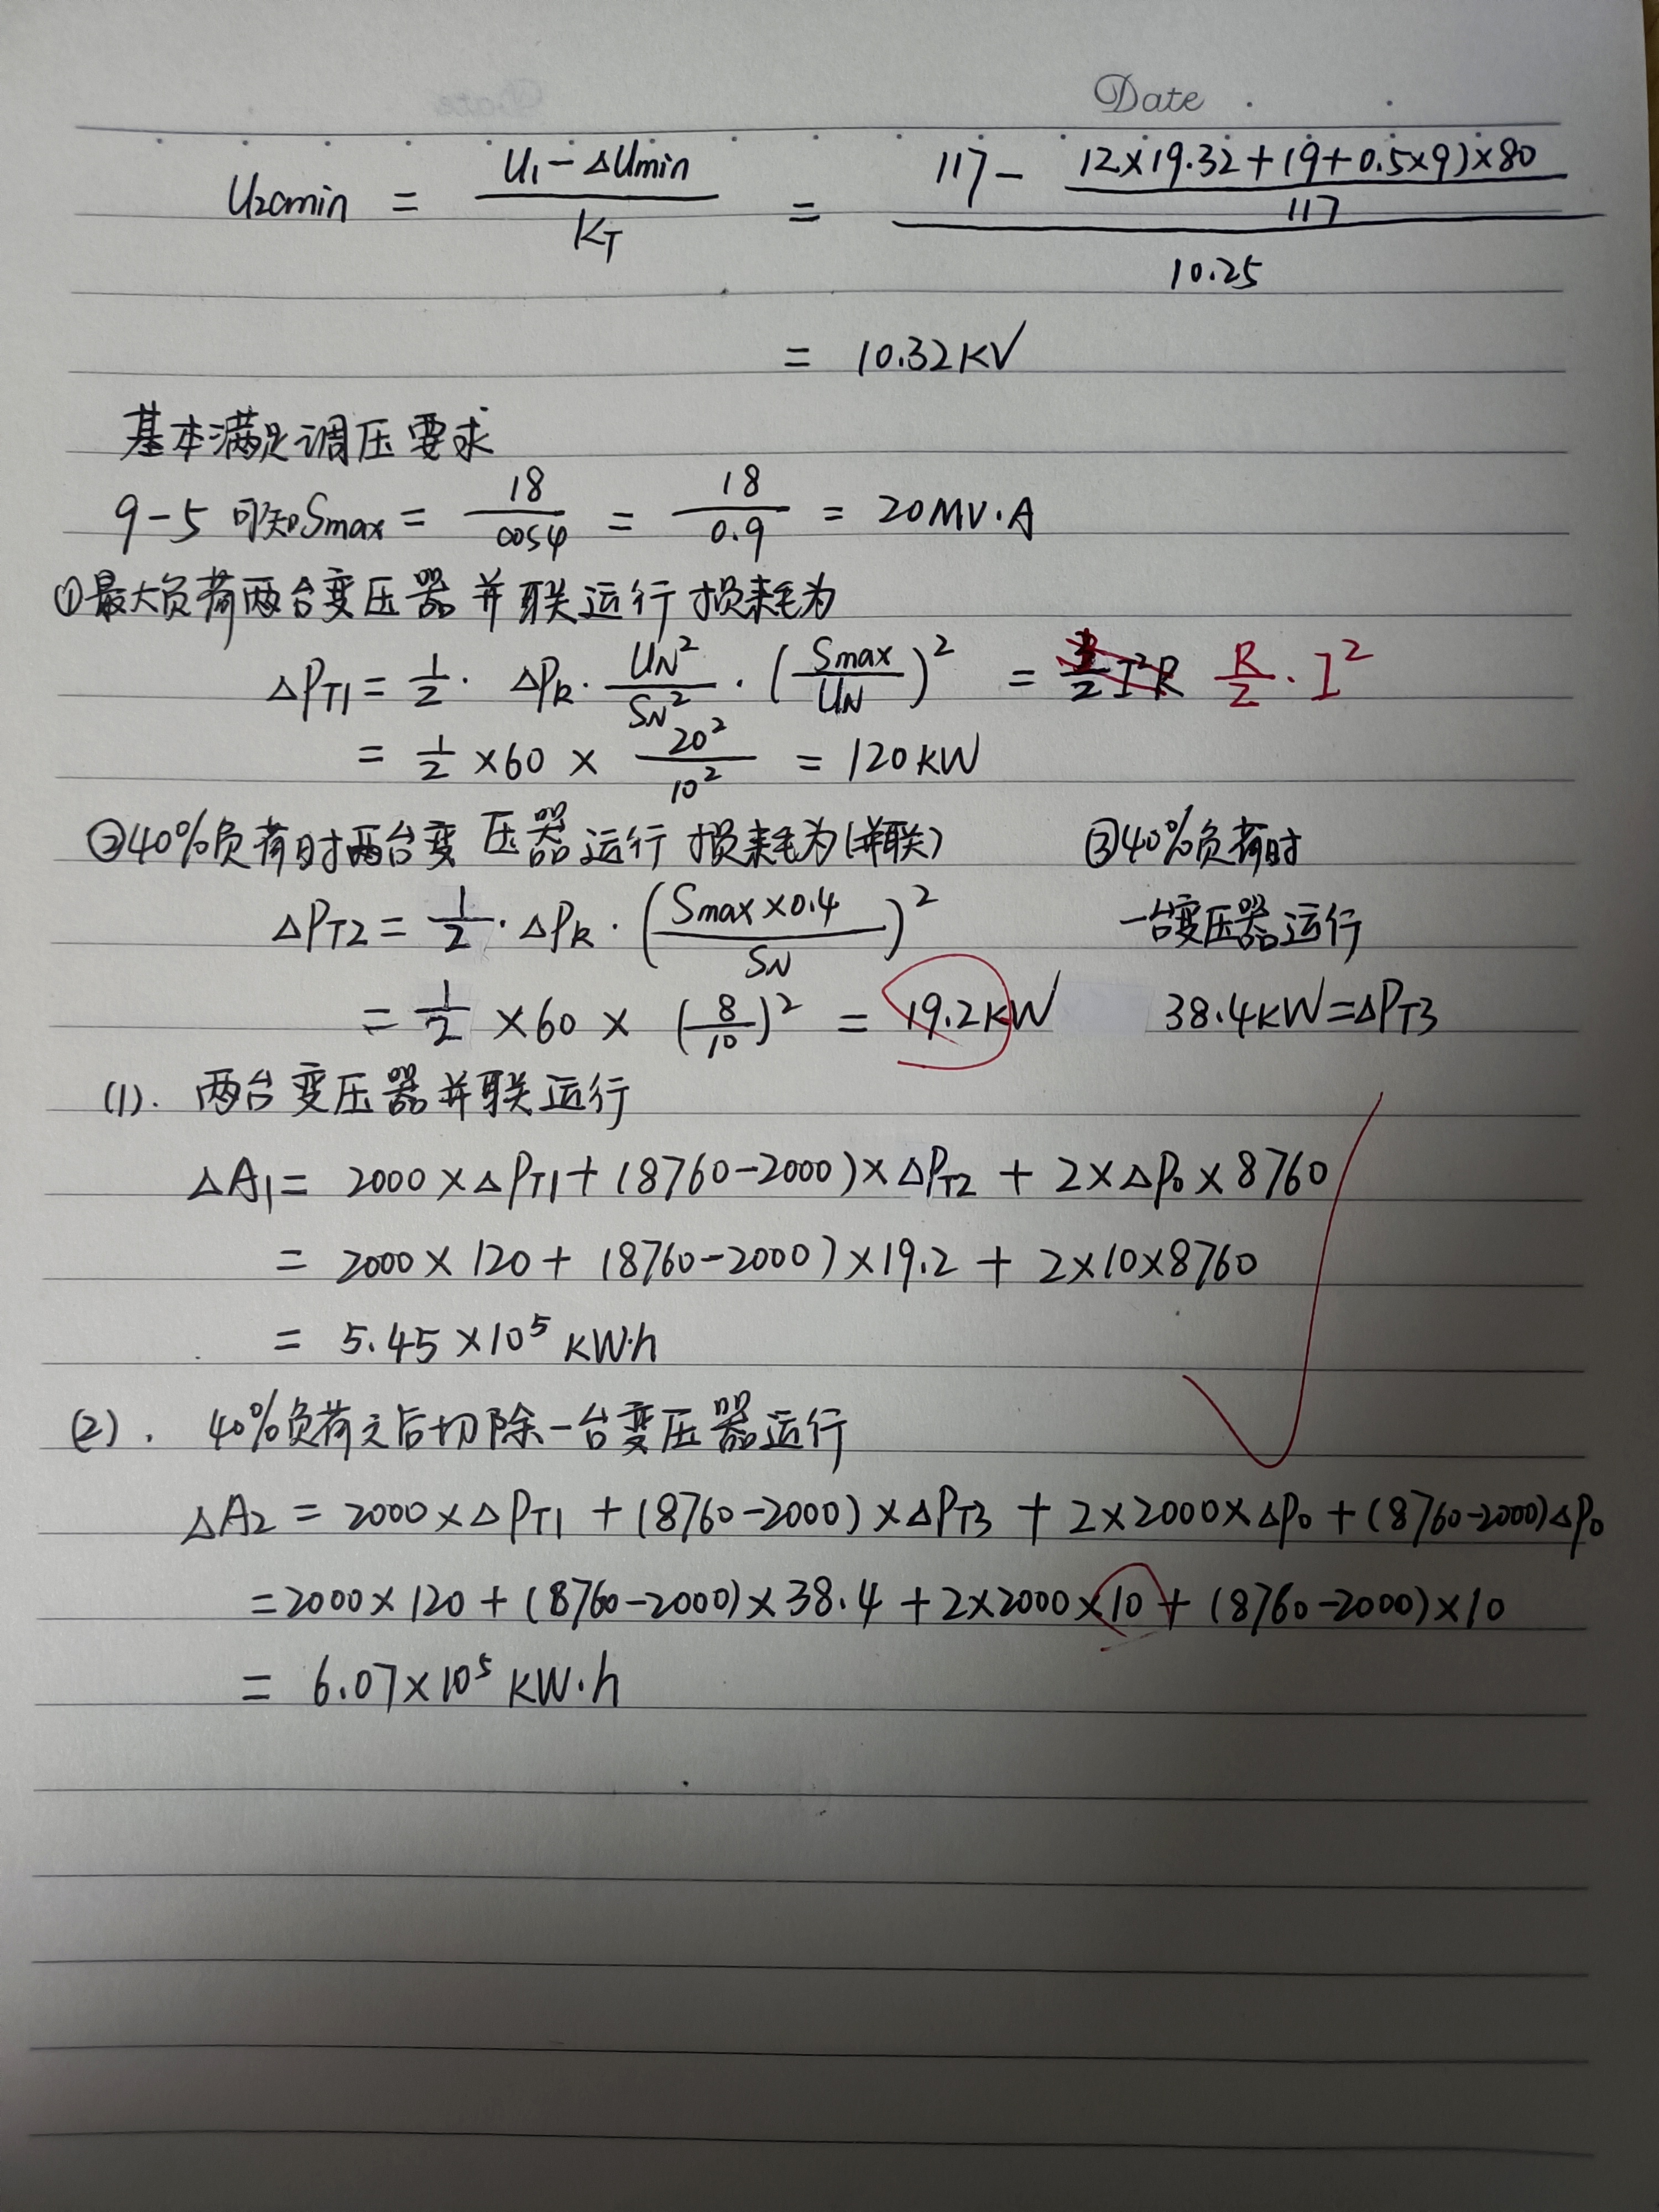 Date
U2cmin = (U1 - ΔUmin) / KT = (117 - (12×19.32+(9+0.5×9)×80) / 117) / 10.25
= 10.32KV
基本满足调压要求
9-5 可知Smax = 18/cosφ = 18/0.9 = 20MV·A
①最大负荷两台变压器并联运行损耗为
ΔPT1 = 1/2 · ΔPk · UN²/SN² · (Smax/UN)² = R/2 · I²
= 1/2 ×60 × 20²/10² = 120KW
②40%负荷时两台变压器运行损耗为(并联)
③40%负荷时
一台变压器运行
ΔPT2 = 1/2 · ΔPk · (Smax×0.4/SN)²
= 1/2 ×60 × (8/10)² = 19.2KW
38.4KW=ΔPT3
(1). 两台变压器并联运行
ΔA1 = 2000×ΔPT1+(8760-2000)×ΔPT2 + 2×ΔP0×8760
= 2000×120 + (8760-2000)×19.2 + 2×10×8760
= 5.45×10⁵ KW·h
(2). 40%负荷之后切除一台变压器运行
ΔA2 = 2000×ΔPT1 + (8760-2000)×ΔPT3 + 2×2000×ΔP0 + (8760-2000)ΔP0
=2000×120 + (8760-2000)×38.4 + 2×2000×10 + (8760-2000)×10
= 6.07×10⁵ KW·h